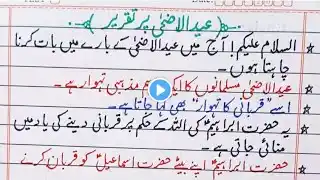 عید الاضحیٰ پر تقریر
السلام علیکم! آج میں عید الاضحیٰ کے بارے میں بات کرنا
چاہتا ہوں۔
عید الاضحیٰ مسلمانوں کا ایک مذہبی تہوار ہے۔
اسے "قربانی کا تہوار" بھی کہا جاتا ہے۔
یہ حضرت ابراہیمؑ کی اللہ کے حکم پر قربانی دینے کی یاد میں
منائی جاتی ہے۔
حضرت ابراہیمؑ اپنے بیٹے حضرت اسماعیلؑ کو قربان کرنے